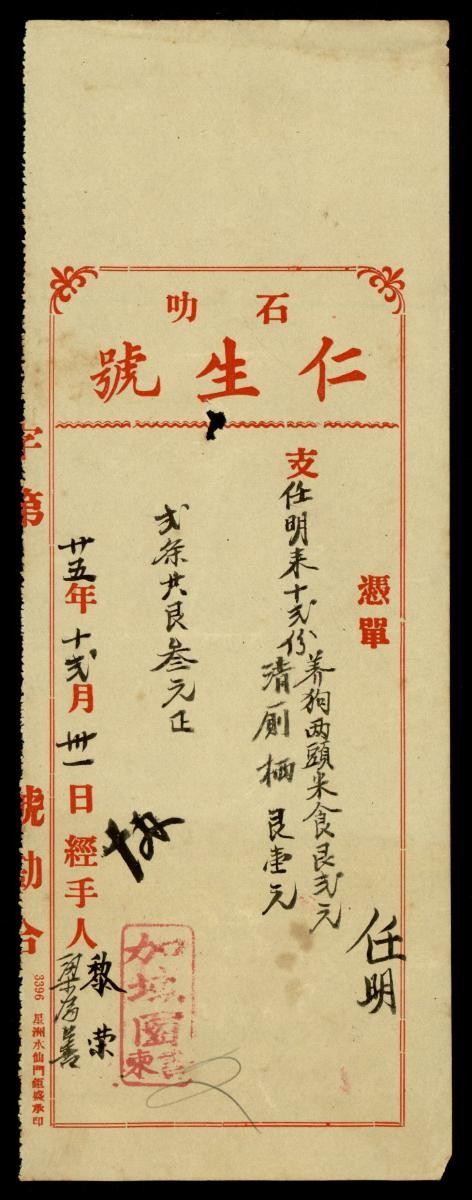 石叻
仁生號
憑單
支任明來十弍份養狗两頭米食艮弍元
清厠桶艮壹元
弍条共艮叁元正
廿五年十弍月卅一日經手人
黎榮
任明
加
園
柬
字第
號勘合
3396 星洲水仙門鉅盛承印